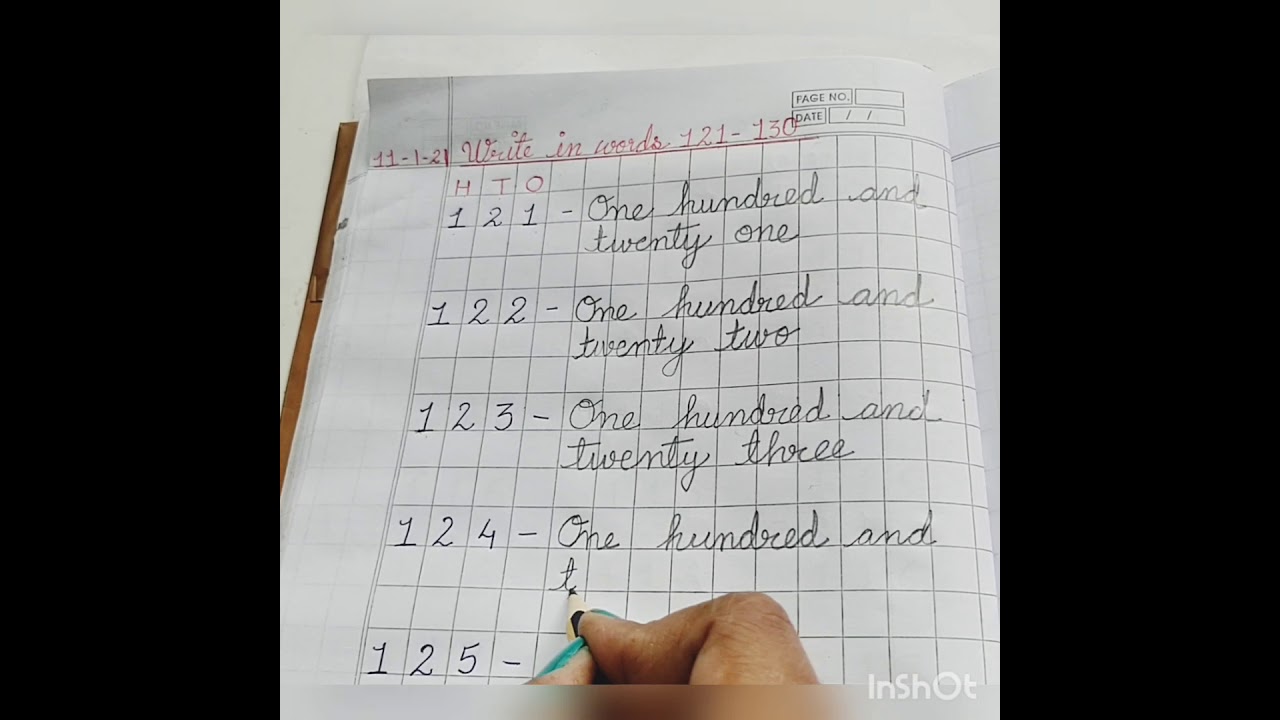 PAGE NO.
DATE / /
11-1-21 Write in words 121-130
H T O
1 2 1 - One hundred and
twenty one
1 2 2 - One hundred and
twenty two
1 2 3 - One hundred and
twenty three
1 2 4 - One hundred and
t
1 2 5 -
InShOt